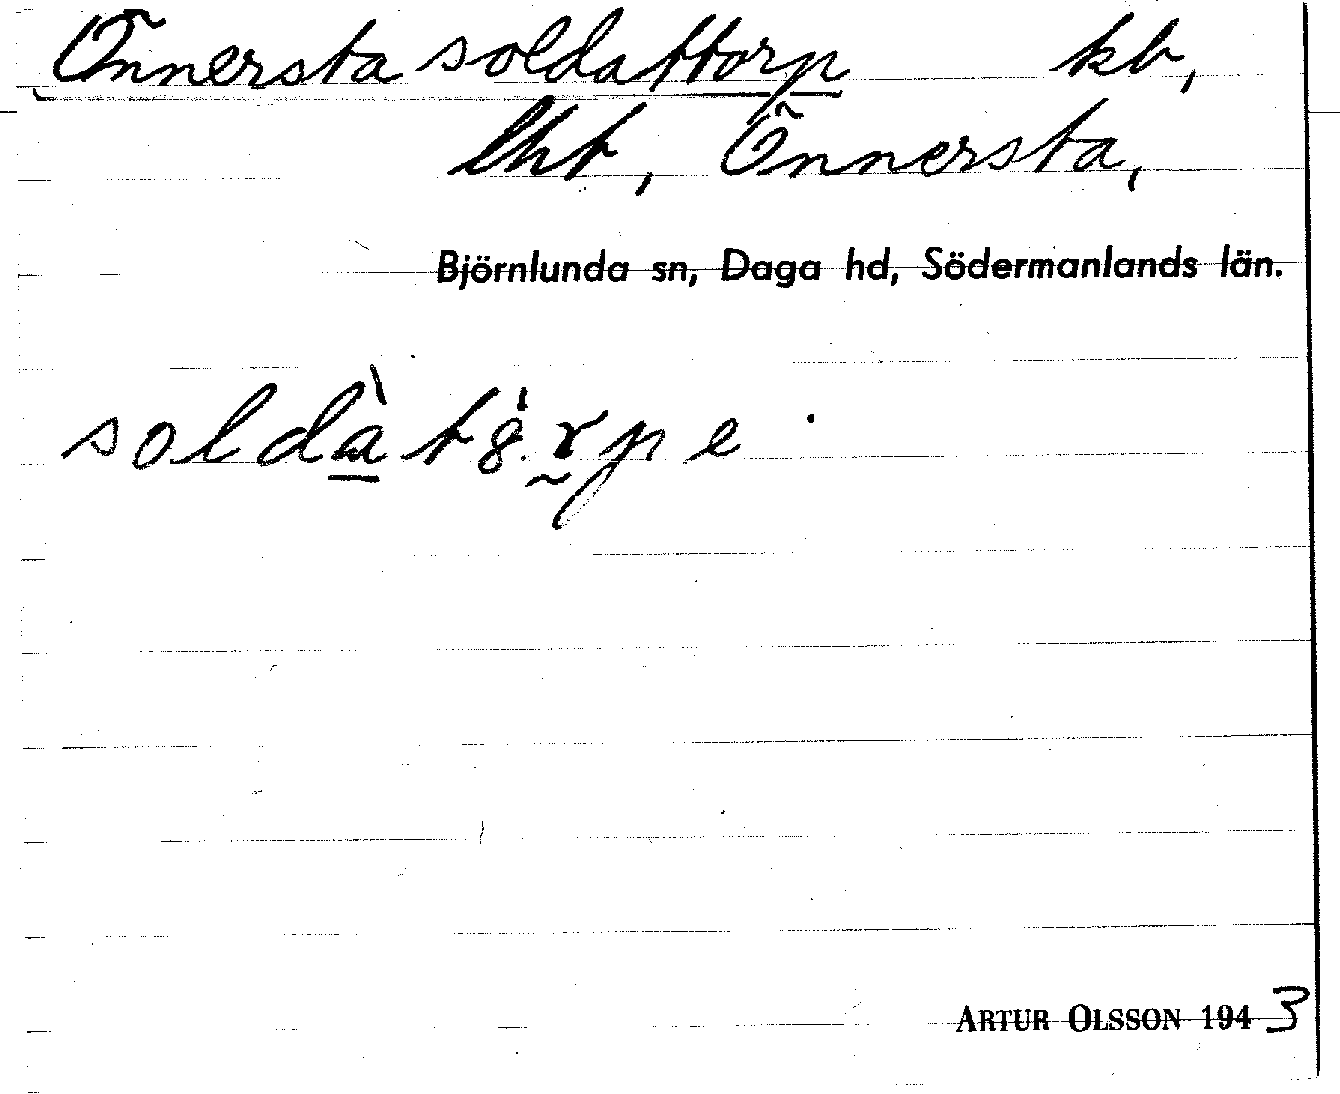 Önnersta soldattorp kb,
lht, Önnersta,
Björnlunda sn, Daga hd, Södermanlands län.
soldàtö́rpe.
ARTUR OLSSON 1943